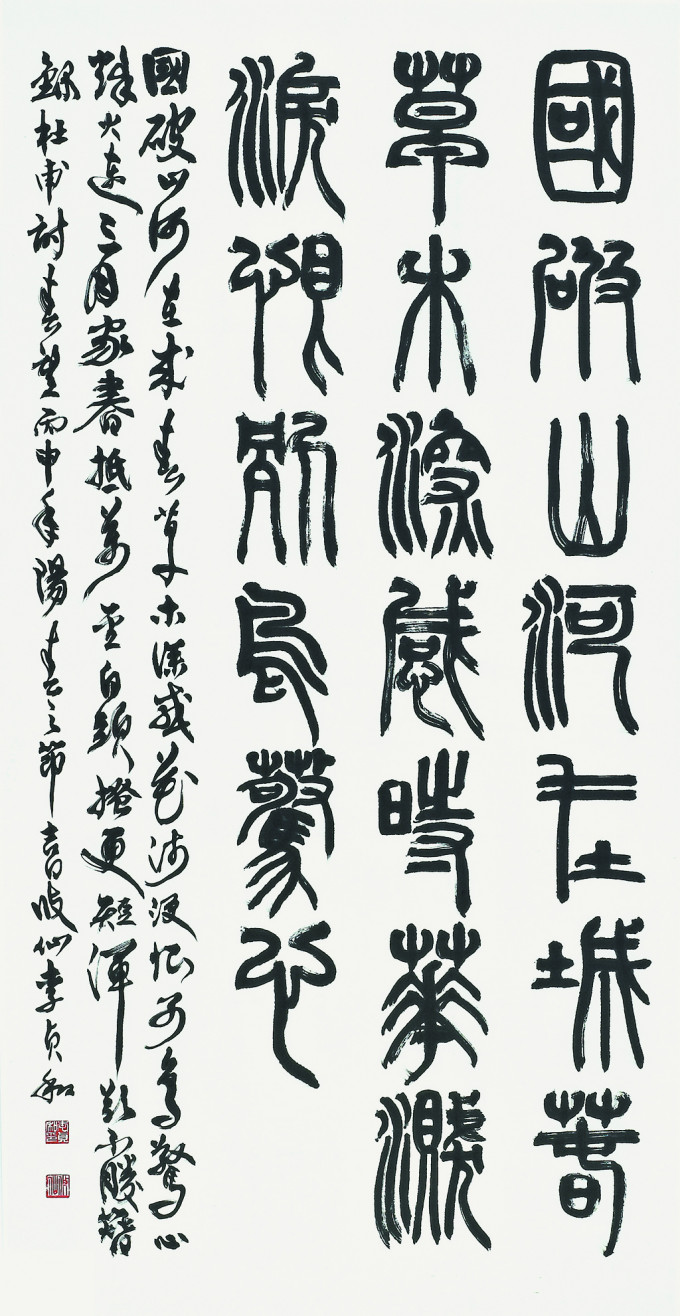 國破山河在城春
草木深感時華濺
淚恨別鳥驚心
國破山河在城春草木深感花濺淚恨別鳥驚心
烽火連三月家書抵萬金白頭搔更短渾欲不勝簪
錄杜甫詩春望丙申年陽春之節吉日仙李貞和